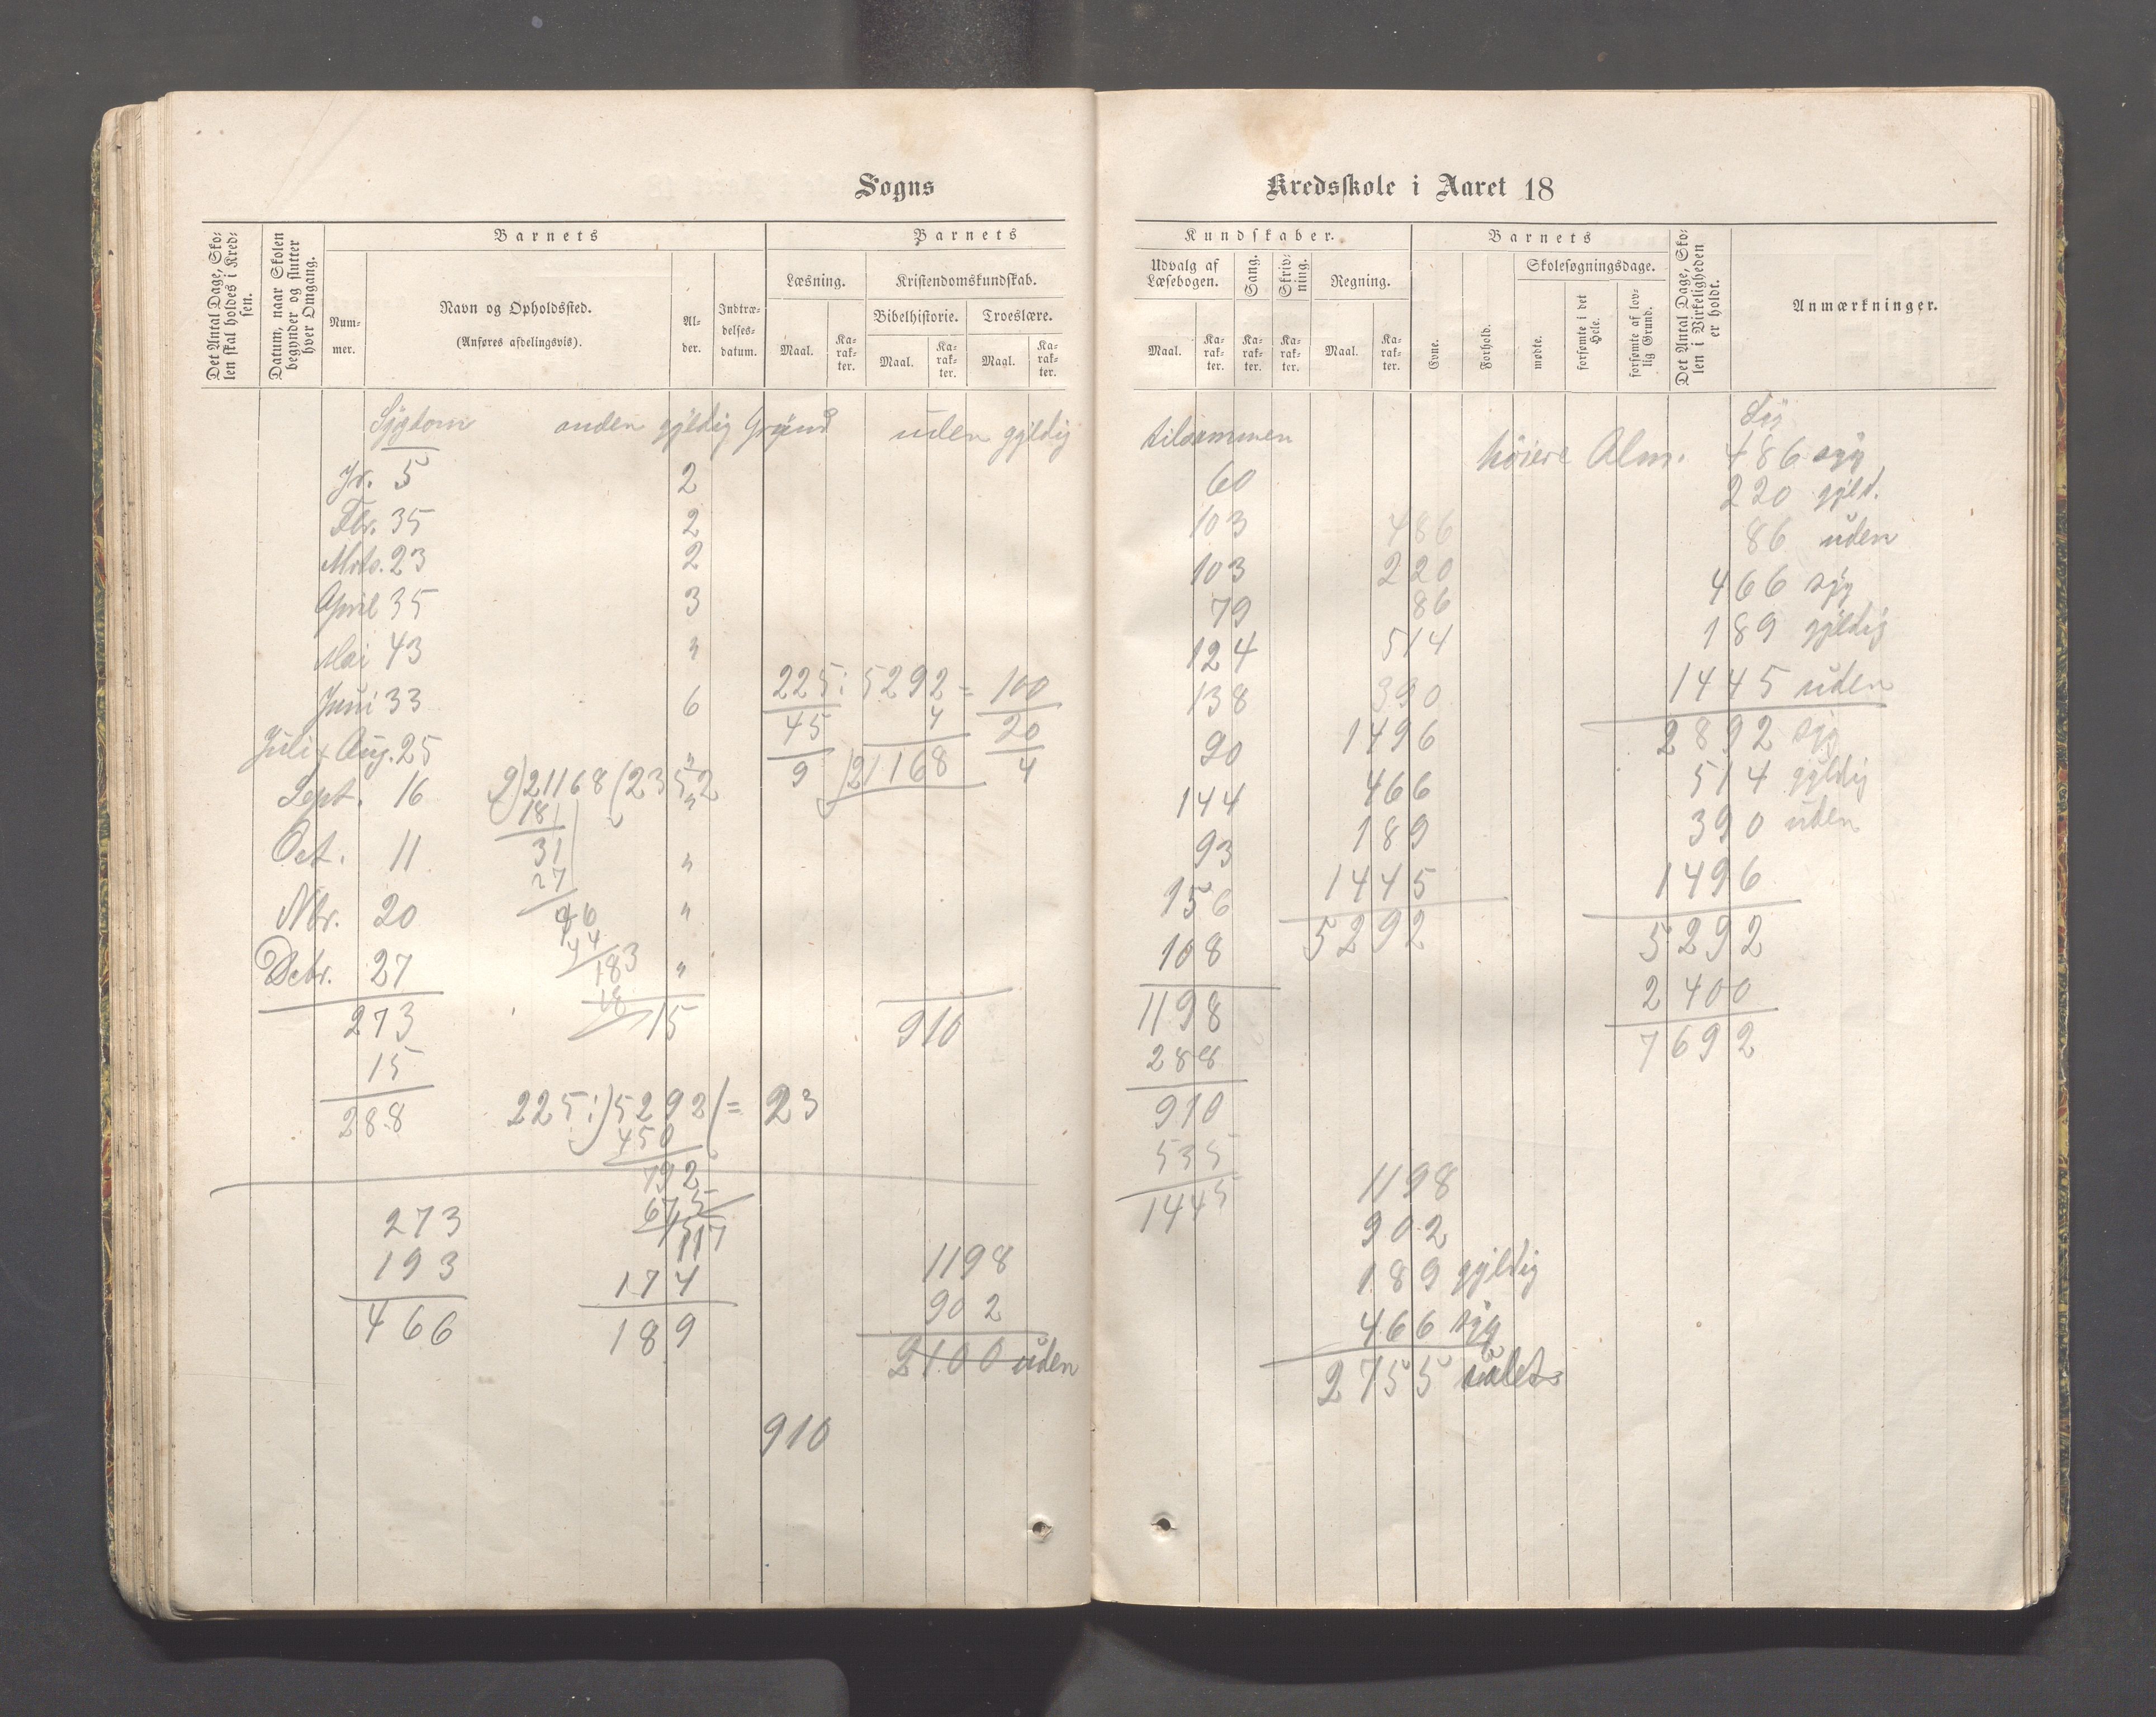 Sogns
Det Antal Dage, Skolen skal holdes i Kredsen.
Datum, naar Skolen begynder og slutter hver Omgang.
Barnets
Nummer.
Navn og Opholdssted.
(Anføres afdelingsvis).
Alder.
Indtrædelsesdatum.
Barnets
Læsning.
Kristendomskundskab.
Bibelhistorie.
Troeslære.
Maal.
Karakter.
Maal.
Karakter.
Maal.
Karakter.
Sygdom anden gyldig Grund uden gyldig
Jr. 5 2
Fbr. 35 2
Mrts. 23 2
April 35 3
Mai 43 "
Juni 33 6
Juli + Aug. 25 "
Sept. 16 "
Oct. 11 "
Nbr. 20 "
Dcbr. 27 "
273 15 910
15
288
225: 5292 = 100
45 4 20
9 21168 4
9)21168(2352
181
31
27
46
44
183
18
225:)5292(= 23
450
792
675
117
273
193
466
174
189
1198
902
2100 uden
910
Kredsskole i Aaret 18
Kundskaber.
Udvalg af Læsebogen.
Sang.
Skrivning.
Regning.
Maal.
Karakter.
Karakter.
Karakter.
Maal.
Karakter.
Barnets
Evne.
Forhold.
Skolesøgningsdage.
mødte.
forsømte i det Hele.
forsømte af lovlig Grund.
Det Antal Dage, Skolen i Virkeligheden er holdt.
Anmærkninger.
tilsammen
60
103
103
79
124
138
90
144
93
156
108
1198
288
910
535
1445
486
220
86
514
390
1496
466
189
1445
5292
1198
902
189 gyldig
466 syg
2755
høiere Alm. 486 syg
220 gyld.
86 uden
466 syg
189 gyldig
1445 uden
2892 syg
514 gyldig
390 uden
1496
5292
2400
7692